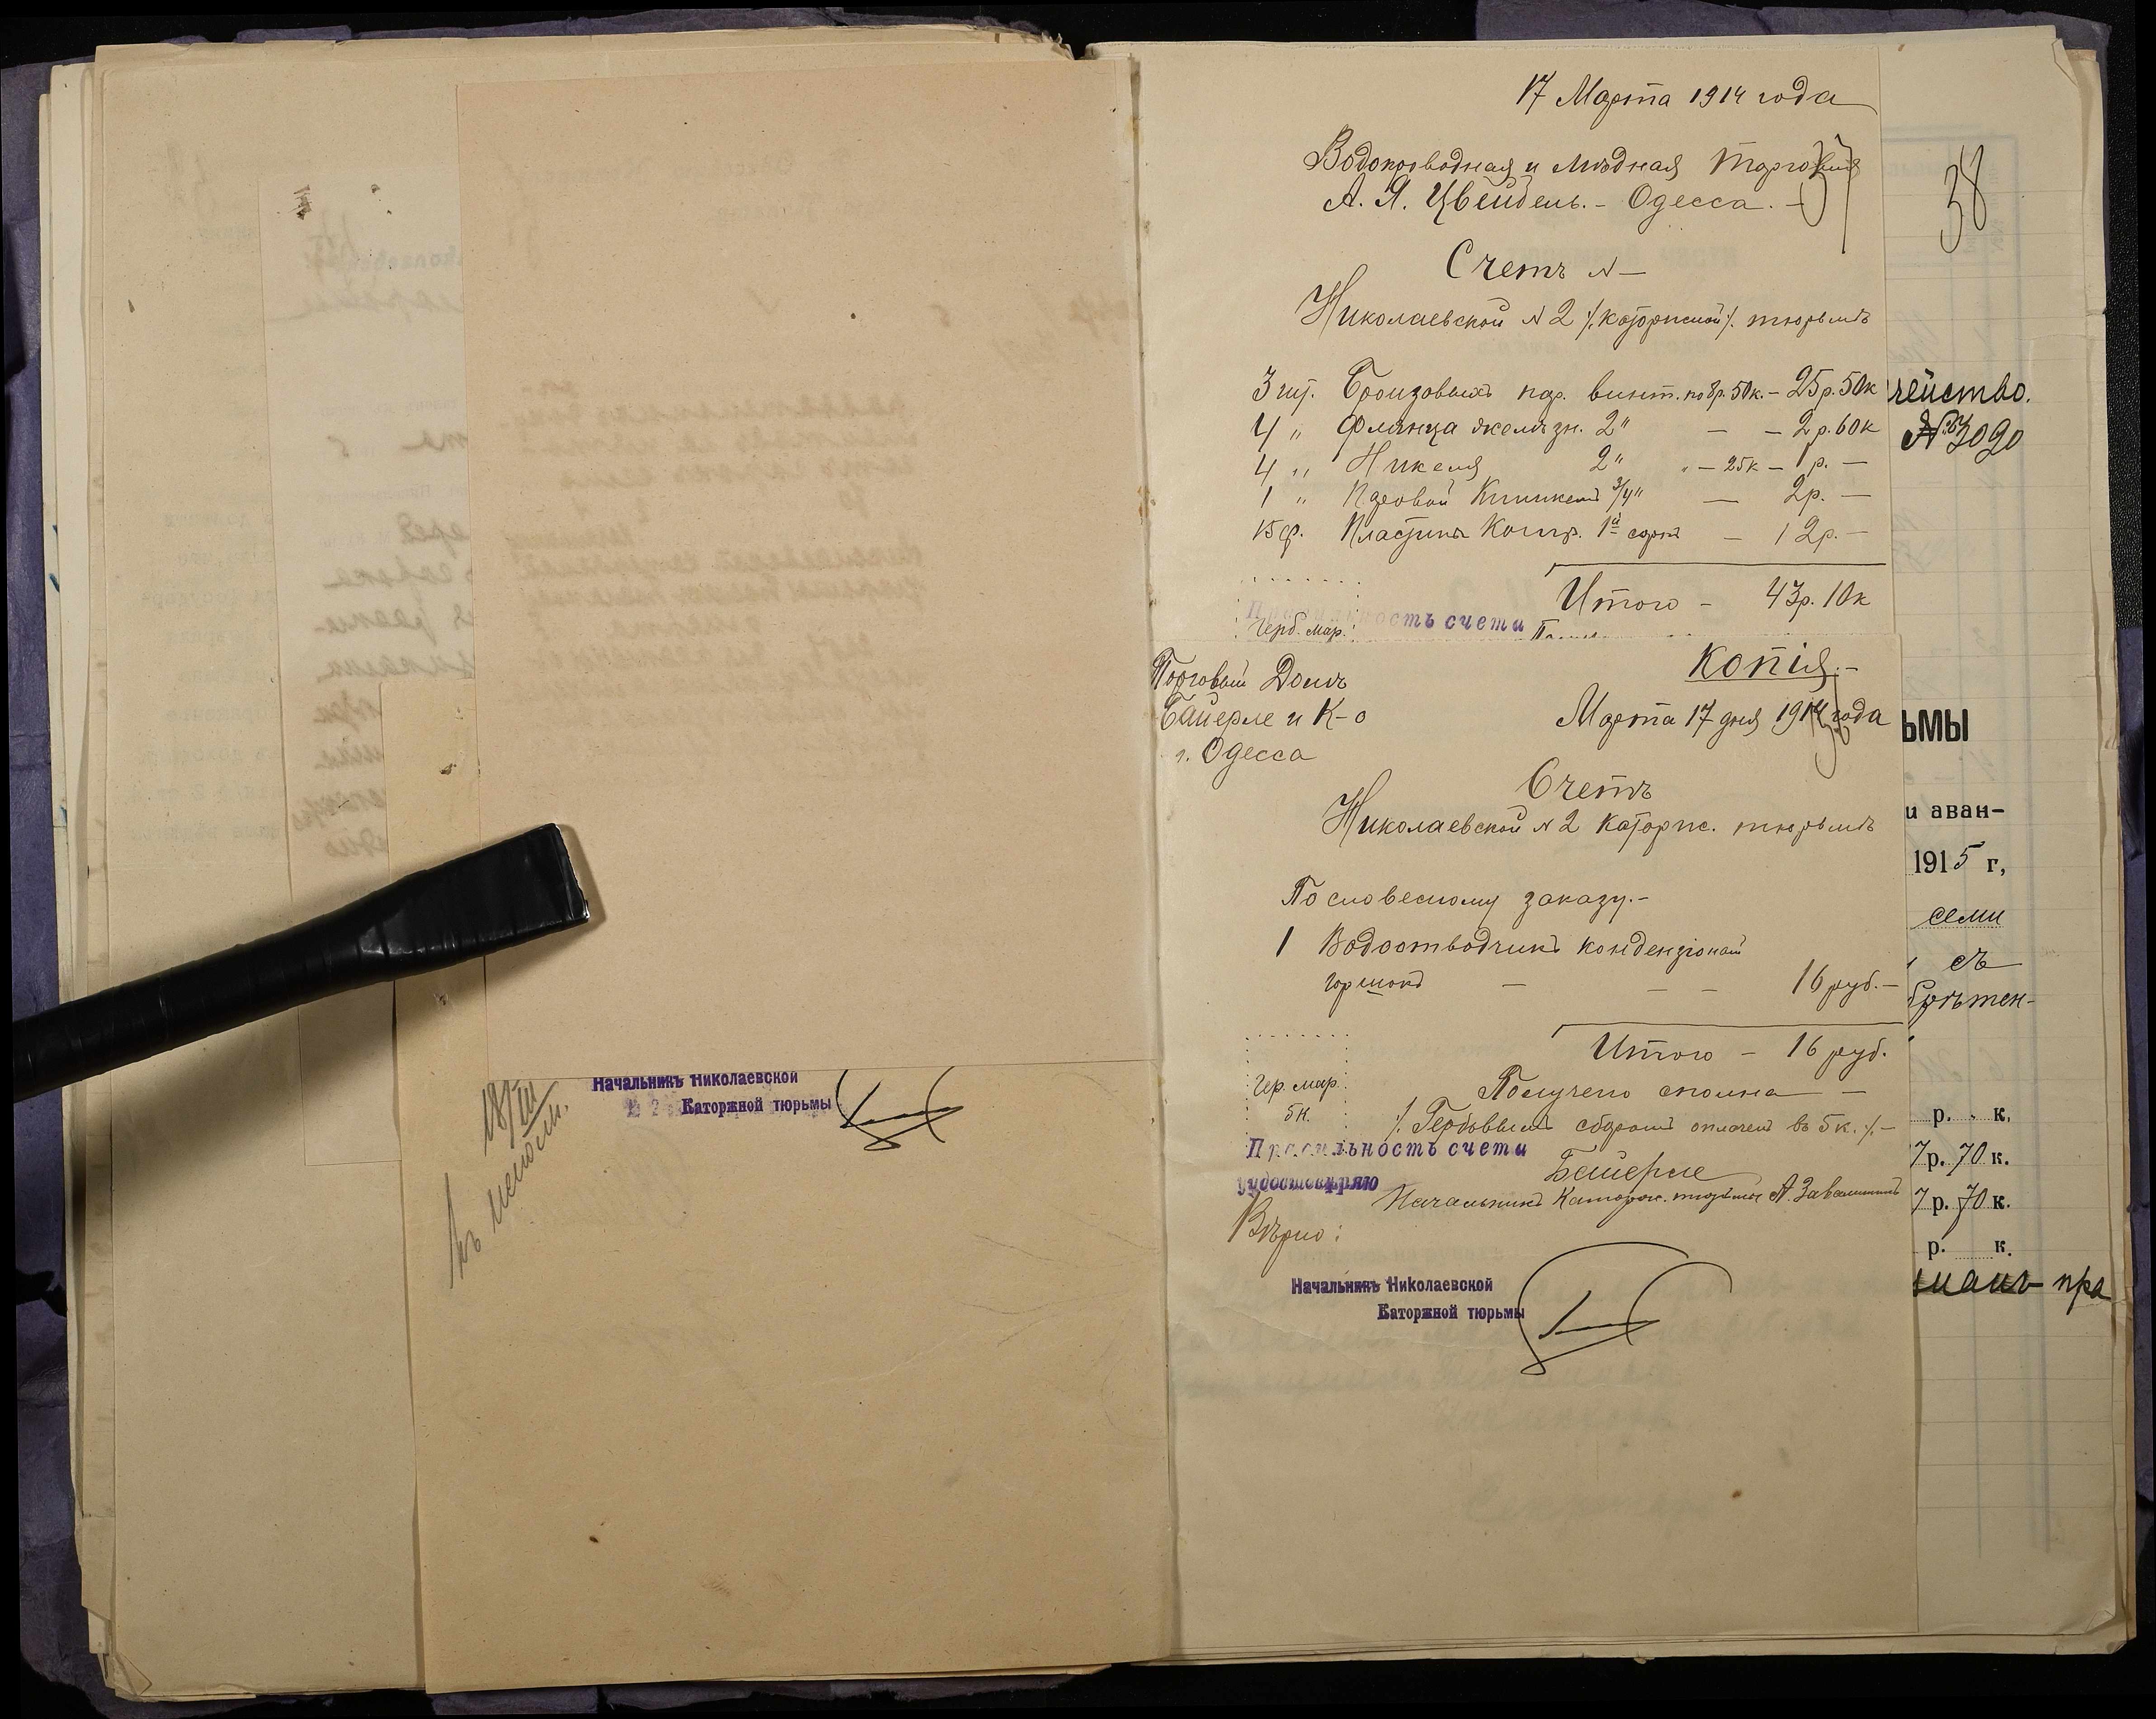 17 Марта 1914 года
Водопроводная и Мѣдная торговля
А. Я. Цвейбель. - Одесса. -
37
38
Счетъ № -
Николаевской № 2 /каторжной/. тюрьмѣ
3 шт. Бронзовыхъ пар. вент. по 8р. 50к. - 25р. 50к
4 " Фланца желѣзн. 2" - - 2р. 60к
4 " Никеля 2" " - 25к - 1р. -
1 " Паровой 3/4" - 2р. -
15 ф. Пластина 1й сорта - 12р. -
Итого - 43р. 10к
Правильность счета
Герб. мар.
чейство.
№ 3090
Торговый Домъ
Копія. -
Байерле и К-о
Марта 17 дня 1914 года
г. Одесса
Счетъ
Николаевской № 2 Каторж. тюрьмѣ
По словесному заказу. -
1 Водоотводчикъ конденціоный
горшокъ - - - 16 руб. -
Итого - 16 руб.
Гер. мар.
5к.
Получено сполна -
/. Гербовымъ сборомъ оплаченъ въ 5 к. /. -
Правильность счета
удостовѣряю
Бейерле
Начальникъ Каторж. тюрьмы А. Завалишинъ
Вѣрно:
Начальникъ Николаевской
Каторжной тюрьмы
ЬМЫ
и аван-
1915 г,
семи
съ
брѣтен-
р. к.
7 р. 70 к.
7 р. 70 к.
р. к.
пра
Начальникъ Николаевской
№ 2 Каторжной тюрьмы
18/III
къ исполн.